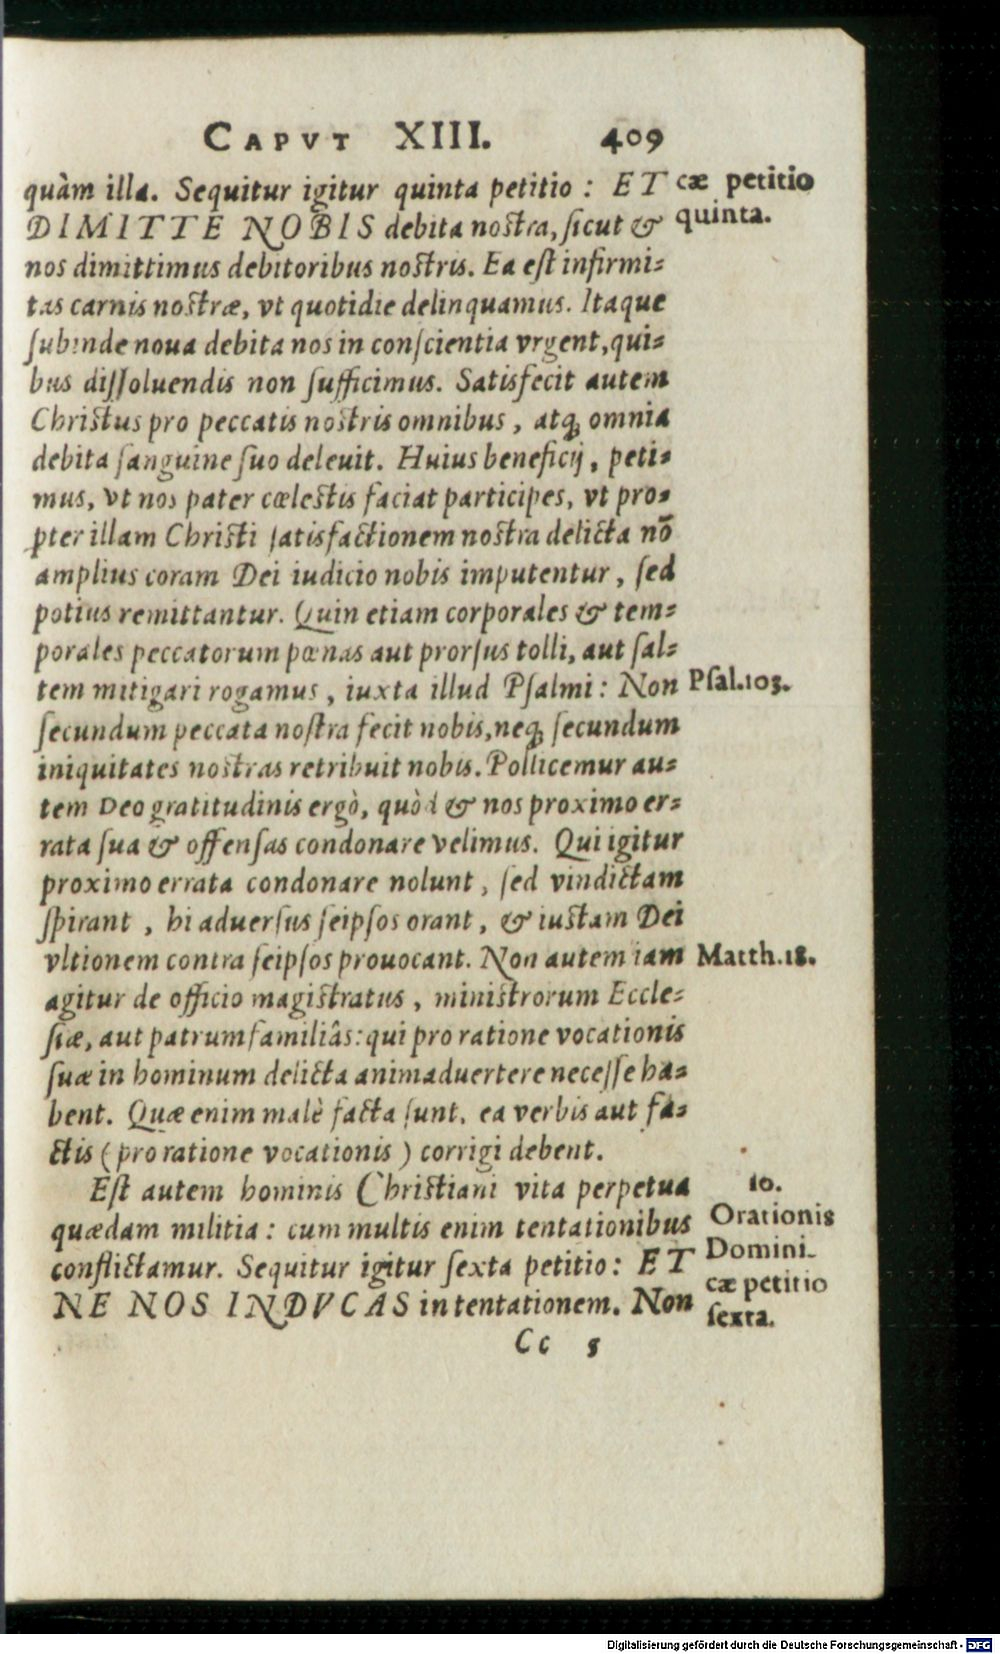 CAPVT XIII. 409
quàm illa. Sequitur igitur quinta petitio: ET
DIMITTE NOBIS debita nostra, sicut &
nos dimittimus debitoribus nostris. Ea est infirmi-
tas carnis nostræ, vt quotidie delinquamus. Itaque
subinde noua debita nos in conscientia vrgent, qui-
bus dissoluendis non sufficimus. Satisfecit autem
Christus pro peccatis nostris omnibus, atq; omnia
debita sanguine suo deleuit. Huius beneficij, peti-
mus, vt nos pater cœlestis faciat participes, vt pro-
pter illam Christi satisfactionem nostra delicta nō
amplius coram Dei iudicio nobis imputentur, sed
potius remittantur. Quin etiam corporales & tem-
porales peccatorum pœnas aut prorsus tolli, aut sal-
tem mitigari rogamus, iuxta illud Psalmi: Non
secundum peccata nostra fecit nobis, neq; secundum
iniquitates nostras retribuit nobis. Pollicemur au-
tem Deo gratitudinis ergò, quòd & nos proximo er-
rata sua & offensas condonare velimus. Qui igitur
proximo errata condonare nolunt, sed vindictam
spirant, hi aduersus seipsos orant, & iustam Dei
vltionem contra seipsos prouocant. Non autem iam
agitur de officio magistratus, ministrorum Eccle-
siæ, aut patrumfamiliâs: qui pro ratione vocationis
suæ in hominum delicta animaduertere necesse ha-
bent. Quæ enim malè facta sunt, ea verbis aut fa-
ctis (pro ratione vocationis) corrigi debent.
Est autem hominis Christiani vita perpetua
quædam militia: cum multis enim tentationibus
conflictamur. Sequitur igitur sexta petitio: ET
NE NOS INDVCAS in tentationem. Non
Cc 5
cæ petitio
quinta.
Psal.103.
Matth.18.
10.
Orationis
Domini-
cæ petitio
sexta.
Digitalisierung gefördert durch die Deutsche Forschungsgemeinschaft - DFG